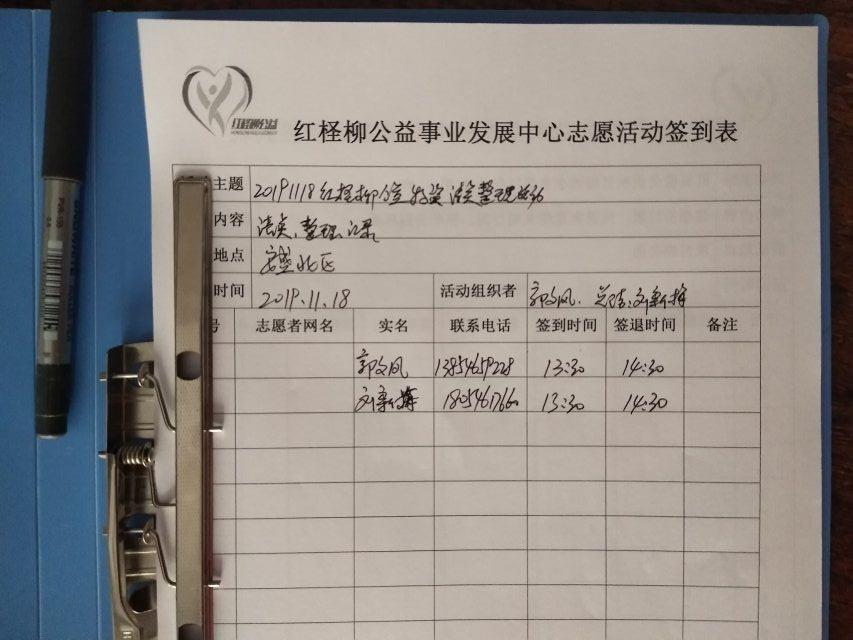 红柽柳公益
红柽柳公益事业发展中心志愿活动签到表
主题 20191118红柽柳公益物资清点整理
内容 清点、整理、记录
地点 安盛北区
时间 2019.11.18 活动组织者 郭文凤、
号 志愿者网名 实名 联系电话 签到时间 签退时间 备注
郭文凤 13854659228 13:30 14:30
13:30 14:30